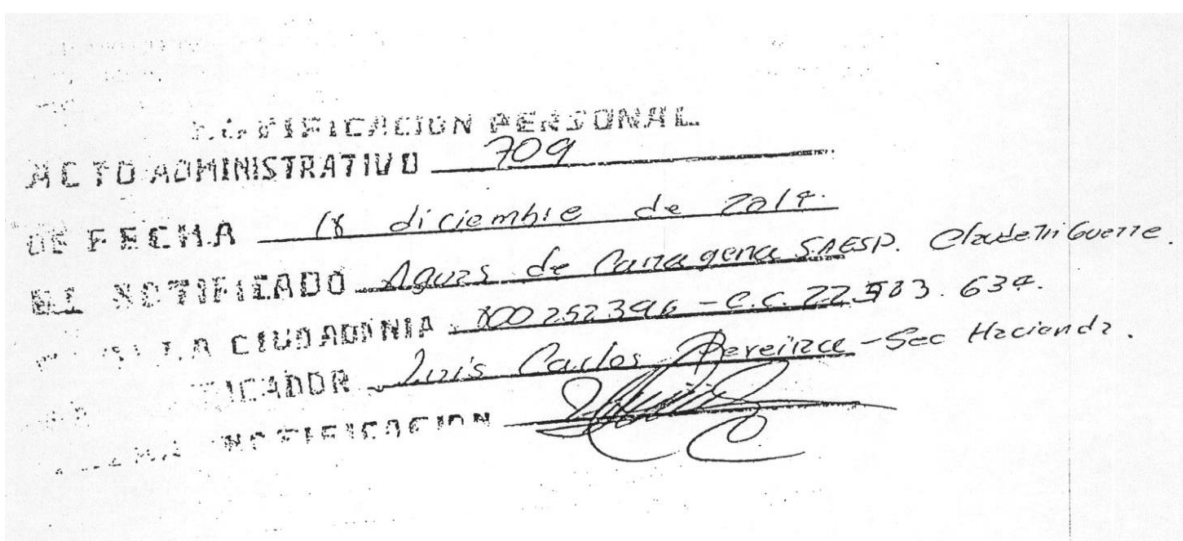 NOTIFICACION PERSONAL
ACTO ADMINISTRATIVO 709
DE FECHA 18 diciembre de 2014.
EL NOTIFICADO Aguas de Cartagena S.A ESP.
LA CIUDADENIA 800252396 - C.C. 22.983.634.
ICADOR Luis Carlos Pereira - Sec Hacienda.
NOTIFICACION